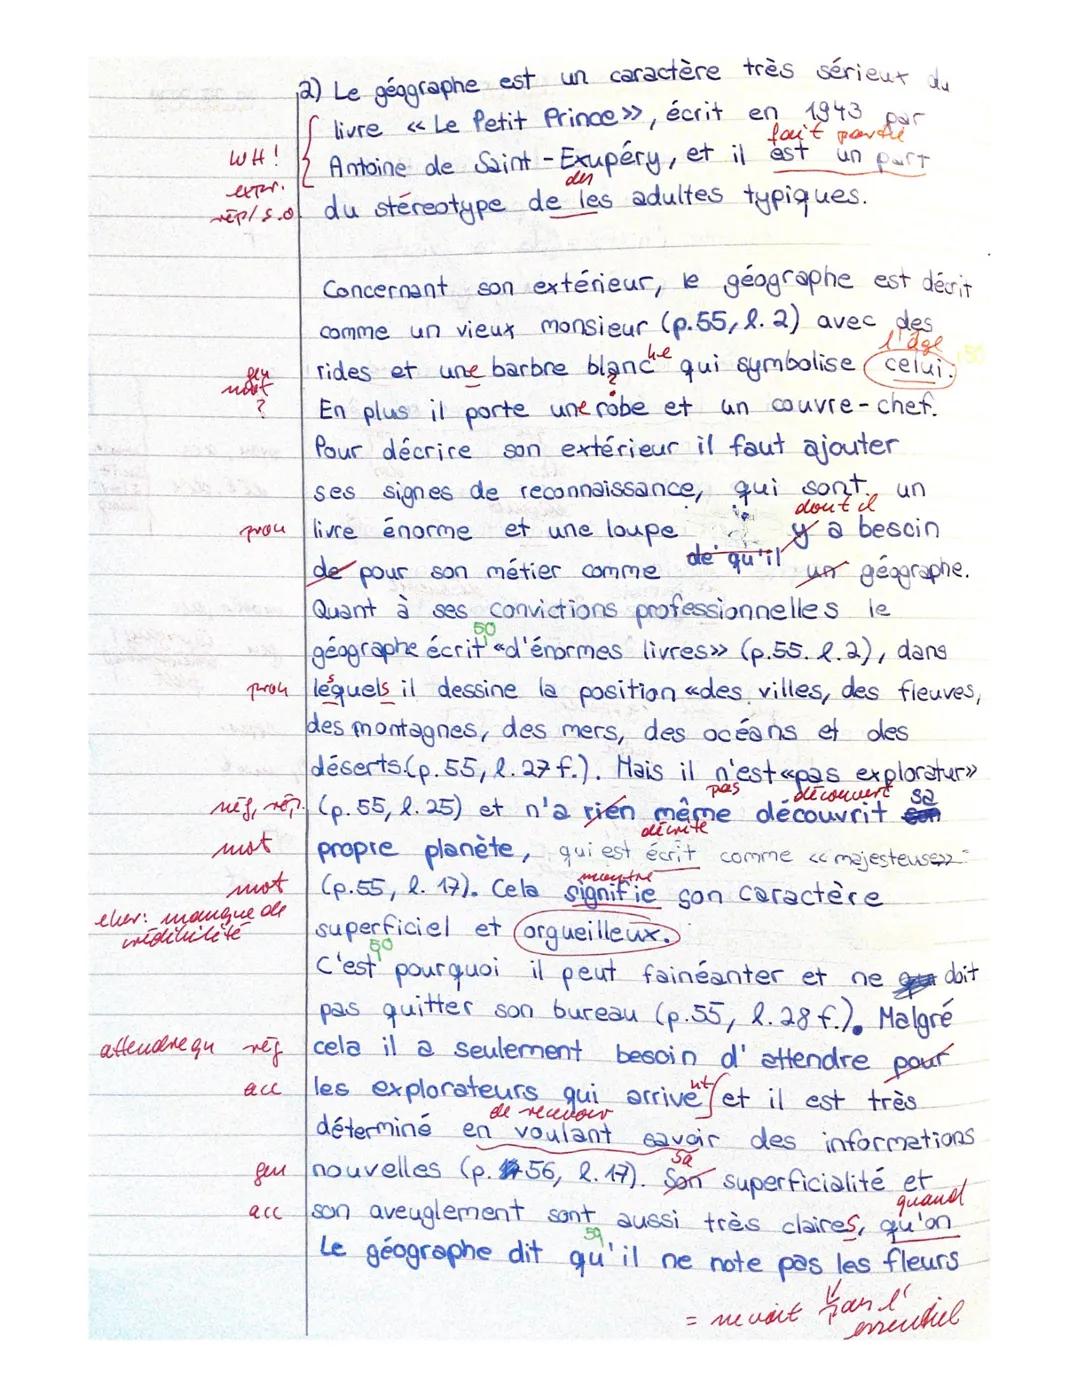 2) Le géographe est un caractère très sérieux du
livre «Le Petit Prince», écrit en 1943 par
fait partie
WH! Antoine de Saint-Exupéry, et il est un part
expr.
des
rép/s.o du stéreotype de les adultes typiques.
Concernant son extérieur, le géographe est décrit
comme un vieux monsieur (p.55, l. 2) avec des
l'âge
rides et une barbre blanche qui symbolise celui. 50
gen
mot
? En plus il porte une robe et un couvre-chef.
Pour décrire son extérieur il faut ajouter
ses signes de reconnaissance, qui sont un
dont il
pron livre énorme et une loupe de qu'il y a besoin
de pour son métier comme un géographe.
Quant à ses convictions professionnelles le
50
géographe écrit «d'énormes livres» (p.55. l.2), dans
pron lesquels il dessine la position «des villes, des fleuves,
des montagnes, des mers, des océans et des
déserts.(p.55, l. 27 f.). Mais il n'est «pas exploratur»
pas découvert sa
nég, rép. (p.55, l. 25) et n'a rien même découvrit son
décrite
mot propre planète, qui est écrit comme «majesteuse»
montre
mot (p.55, l. 17). Cela signifie son caractère
cher: manque de
crédibilité superficiel et orgueilleux.
50
C'est pourquoi il peut fainéanter et ne doit
pas quitter son bureau (p.55, l. 28 f.). Malgré
attendre qn rég cela il a seulement besoin d'attendre pour
acc les explorateurs qui arrivent et il est très
de recevoir
déterminé en voulant savoir des informations
sa
gen nouvelles (p. 56, l. 17). Son superficialité et
quand
acc son aveuglement sont aussi très claires, qu'on
50
Le géographe dit qu'il ne note pas les fleurs
= ne voit pas l'essentiel